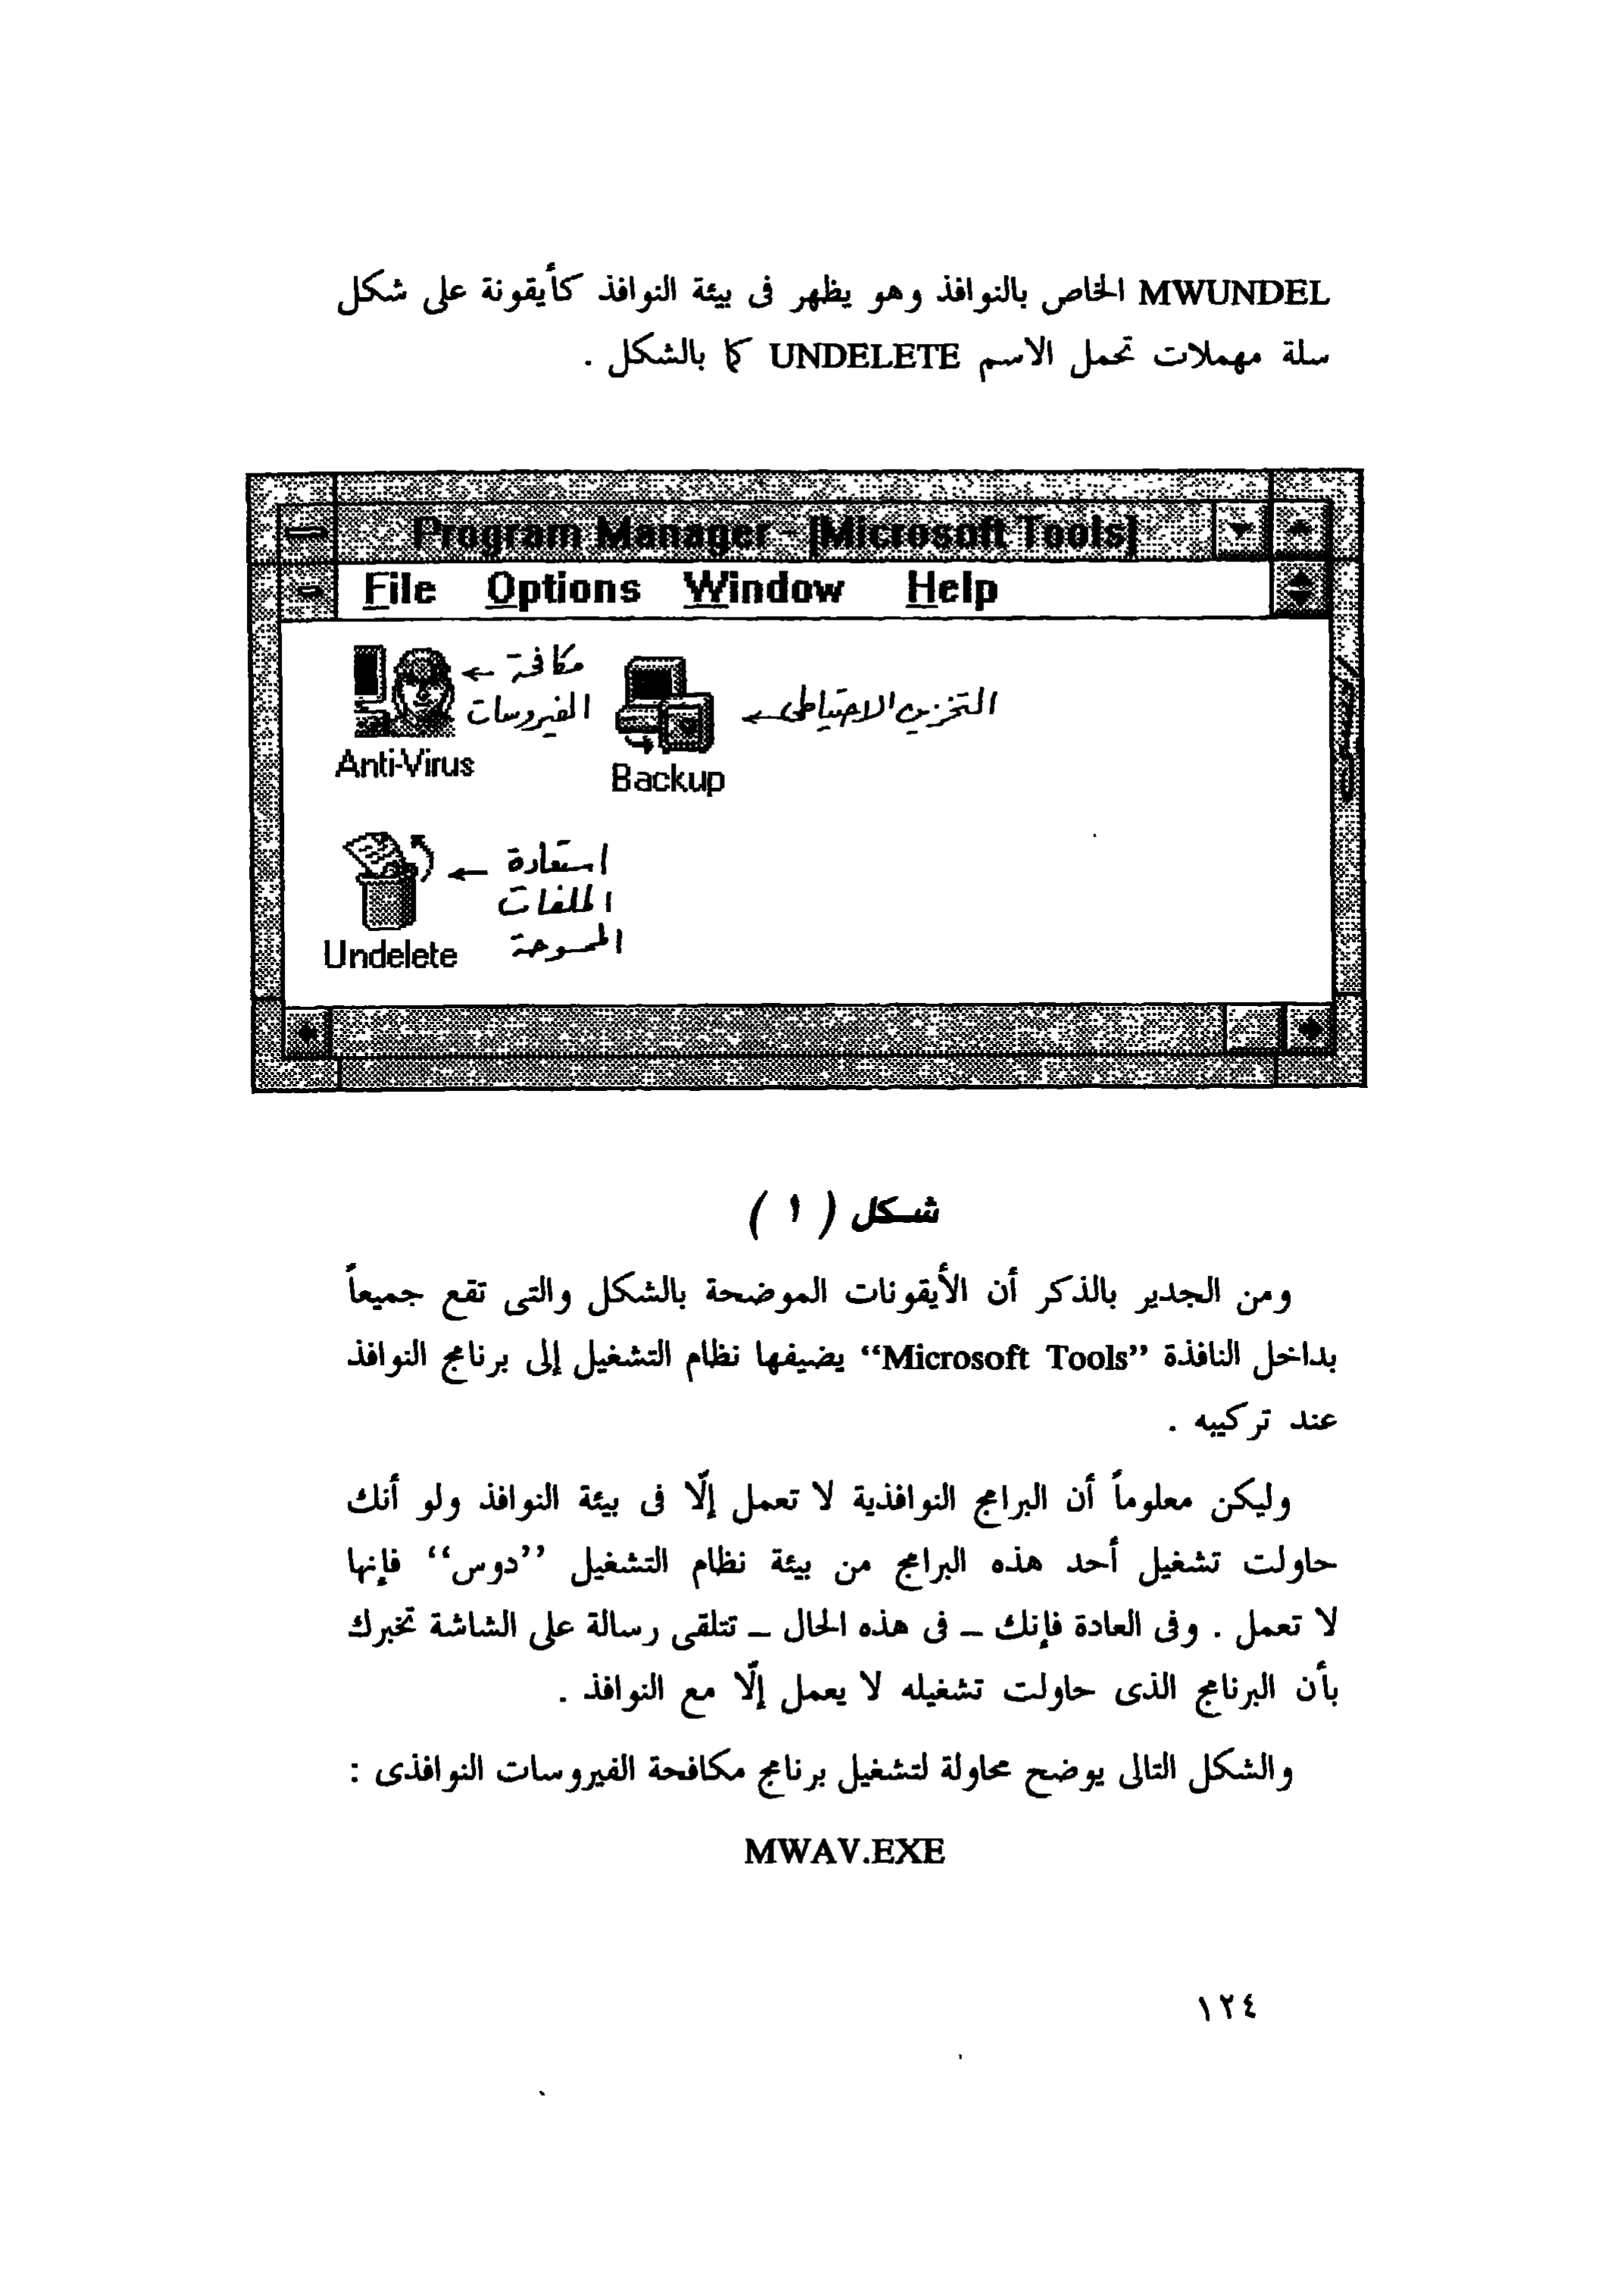 MWUNDEL الخاص بالنوافذ وهو يظهر فى بيئة النوافذ كأيقونة على شكل
سلة مهملات تحمل الاسم UNDELETE كما بالشكل .
Program Manager - [Microsoft Tools]
File Options Window Help
مكافحة
الفيروسات
Anti-Virus
التخزين الاحتياطى
Backup
استعادة
الملفات
الممسوحة
Undelete
شكل ( ١ )
ومن الجدير بالذكر أن الأيقونات الموضحة بالشكل والتى تقع جميعاً
بداخل النافذة “Microsoft Tools” يضيفها نظام التشغيل إلى برنامج النوافذ
عند تركيبه .
وليكن معلوماً أن البرامج النوافذية لا تعمل إلّا فى بيئة النوافذ ولو أنك
حاولت تشغيل أحد هذه البرامج من بيئة نظام التشغيل ‘‘دوس’’ فإنها
لا تعمل . وفى العادة فإنك – فى هذه الحال – تتلقى رسالة على الشاشة تخبرك
بأن البرنامج الذى حاولت تشغيله لا يعمل إلّا مع النوافذ .
والشكل التالى يوضح محاولة لتشغيل برنامج مكافحة الفيروسات النوافذى :
MWAV.EXE
١٢٤